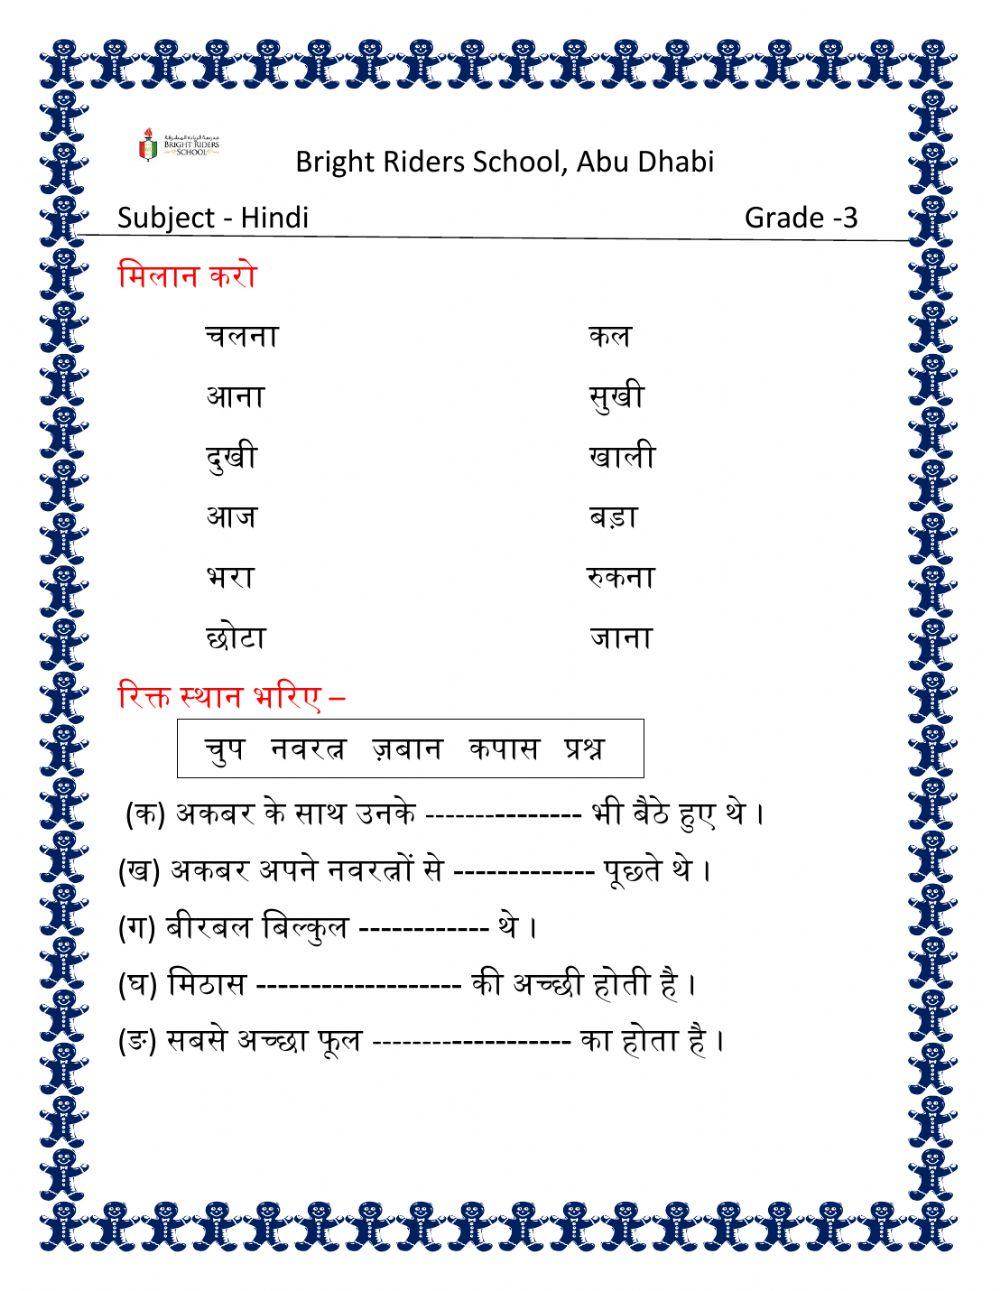 BRIGHT RIDERS
SCHOOL
Bright Riders School, Abu Dhabi
Subject - Hindi Grade -3
मिलान करो
चलना कल
आना सुखी
दुखी खाली
आज बड़ा
भरा रुकना
छोटा जाना
रिक्त स्थान भरिए –
चुप नवरत्न ज़बान कपास प्रश्न
(क) अकबर के साथ उनके --------------- भी बैठे हुए थे ।
(ख) अकबर अपने नवरत्नों से ------------- पूछते थे ।
(ग) बीरबल बिल्कुल ------------ थे ।
(घ) मिठास ------------------- की अच्छी होती है ।
(ङ) सबसे अच्छा फूल ------------------- का होता है ।